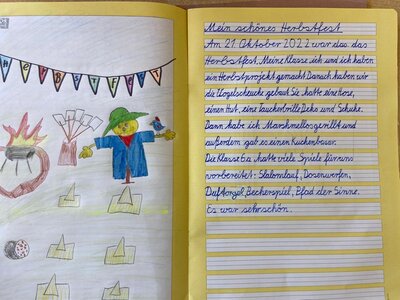 HERBSTFEST
Mein schönes Herbstfest
Am 21. Oktober 2022 war das das
Herbstfest. Meine Klasse ich und ich haben
ein Herbstprojekt gemacht. Danach haben wir
die Vogelscheuche gebaut. Sie hatte eine Hose,
einen Hut, eine Taucherbrille Deko und Schuhe.
Dann habe ich gegrillt und
außerdem gab es einen Kuchenbasar.
Die Klasse 6a hatte viele Spiele für uns
vorbereitet: Slalomlauf, Dosenwerfen,
Duftorgel, Becherspiel, Pfad der Sinne.
Es war sehr schön.